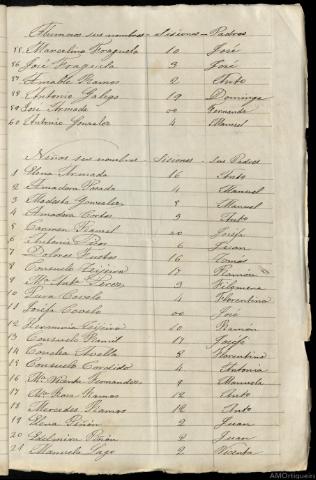 Alumnos sus nombres - Lisiones - Padres
55 Marcelino Fraguela 10 José
56 José Fraguela 3 José
57 Amable Ramos 2 Anto
58 Antonio Galego 19 Domingo
59 José Armada 00 Fernando
60 Antonio Gonzalez 4 Manuel
Niñas sus nombres - Lisiones - Sus Padres
1 Elena Armada 16 Anto
2 Amadora Posada 4 Manuel
3 Modesta Gonzalez 8 Manuel
4 Amadora Cortes 3 Anto
5 Carmen 20 Josefa
6 Antonia 6 Juan
7 Dolores Bustos 16 Tomás
8 Consuelo Teijeiro 17 Ramón
9 Mª Antª Perez 3 Filomena
10 Pura Covelo 4 Florentina
11 Josefa Covelo 00 José
12 Herminia Teijeiro 10 Ramón
13 Consuelo 17 Josefa
14 8 Florentina
15 Consuelo Cordido 4 Antonia
16 Mª Vicenta Fernandez 9 Manuela
17 Mª Rosa Ramos 12 Anto
18 Mercedes Ramos 12 Anto
19 Elena Piñón 2 Juan
20 Edelmira Piñón 2 Juan
21 Manuela Lago 2 Vicenta
AMOrtigueira